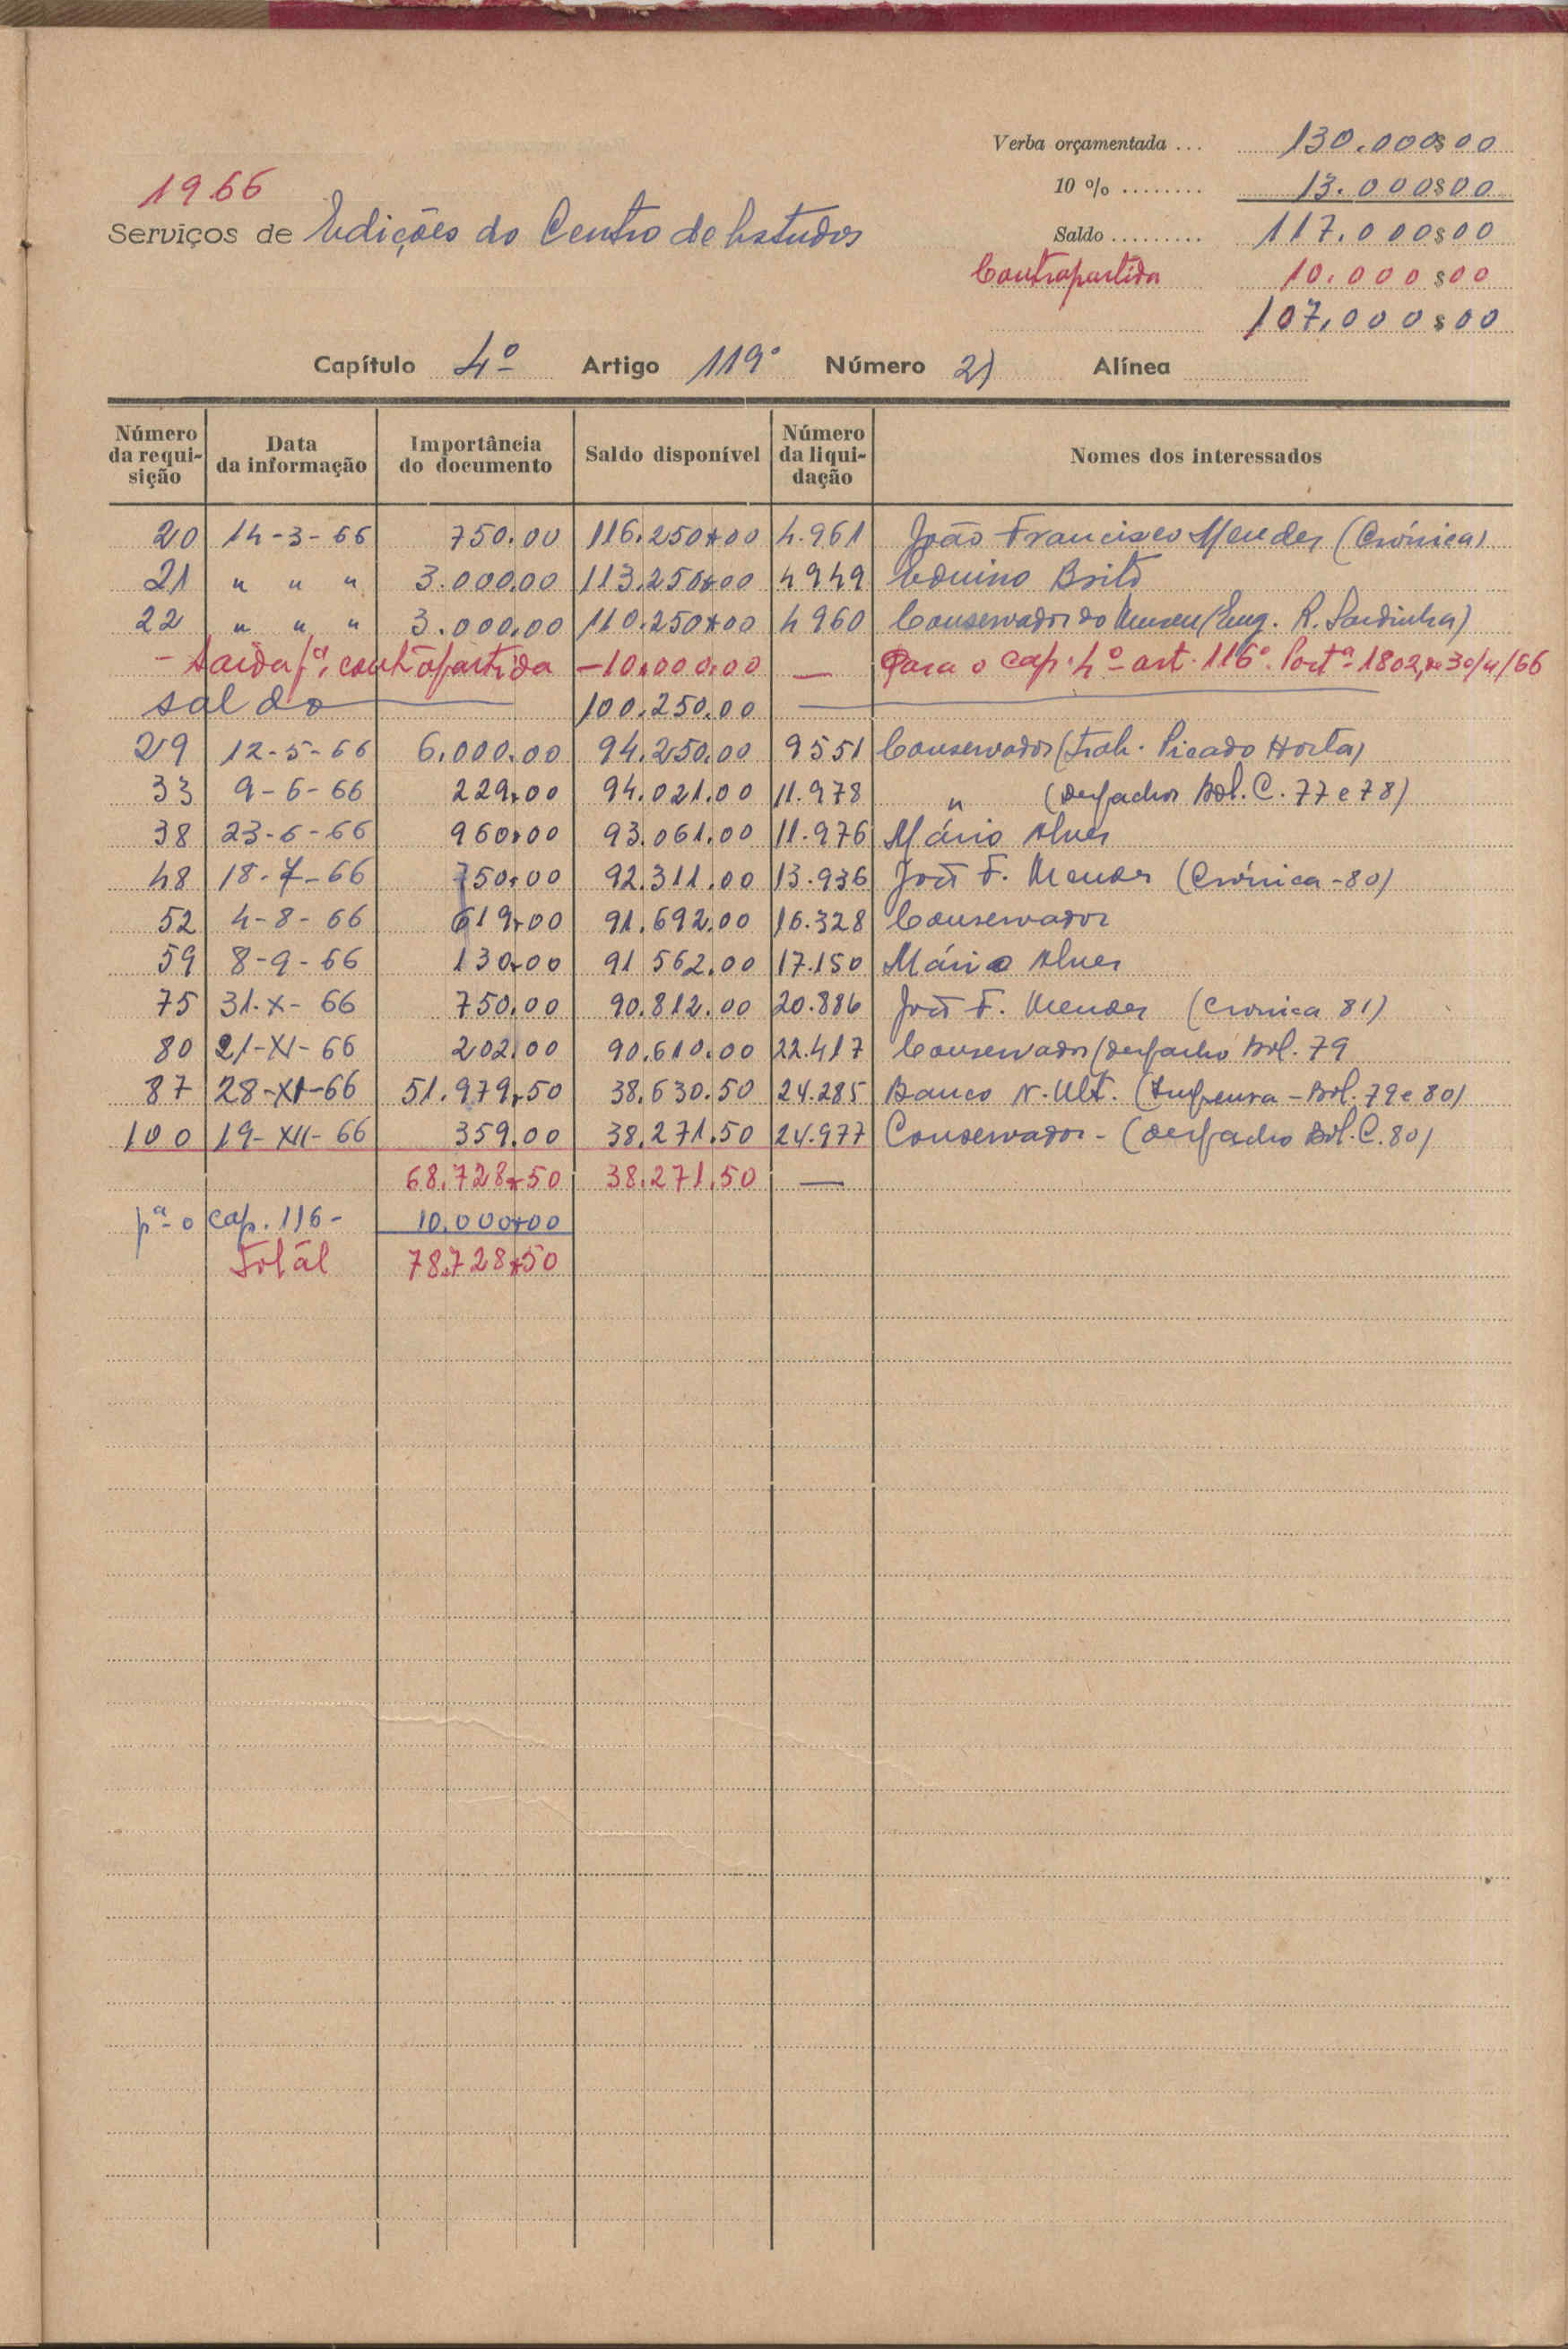 Verba orçamentada ... 130.000$00
1966
10 % ........ 13.000$00
Serviços de Edições do Centro de Estudos
Saldo ......... 117.000$00
Contrapartida 10.000$00
107.000$00
Capítulo 4º Artigo 119º Número 2) Alínea
Número da requi-sição Data da informação Importância do documento Saldo disponível Número da liqui-dação Nomes dos interessados
20 14-3-66 750.00 116.250$00 4.961 João Francisco Mendes (Crónica)
21 " " " 3.000.00 113.250$00 4949 Eduino Brito
22 " " " 3.000.00 110.250$00 4960 Conservador do Museu (Eng. R. Sardinha)
- Saída pª. contrapartida -10.000.00 — Para o cap. 4º art. 116º. Portª 1802, de 30/4/66
saldo 100.250.00 —
29 12-5-66 6.000.00 94.250.00 9551 Conservador (trab. Picado Horta)
33 9-6-66 229.00 94.021.00 11.978 " (despachos Bol. C. 77 e 78)
38 23-6-66 960.00 93.061.00 11.976 Mário Alves
48 18-7-66 750.00 92.311.00 13.936 João F. Mendes (Crónica-80)
52 4-8-66 619.00 91.692.00 16.328 Conservador
59 8-9-66 130.00 91562.00 17.150 Mário Alves
75 31-X-66 750.00 90.812.00 20.886 João F. Mendes (Cronica 81)
80 21-XI-66 202.00 90.610.00 22.417 Conservador (despacho Bol. 79
87 28-XI-66 51.979.50 38.630.50 24.285 Banco N. Ult. (Imprensa - Bol. 79 e 80)
100 19-XII-66 359.00 38.271.50 24.977 Conservador - (despacho Bol. C. 80)
68.728$50 38.271.50 —
pª o cap. 116- 10.000$00
Totál 78.728$50